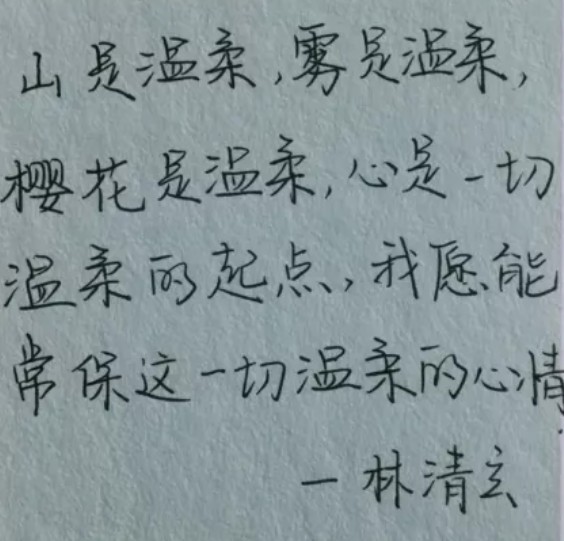 山是温柔,雾是温柔,
樱花是温柔,心是一切
温柔的起点,我愿能
常保这一切温柔的心情.
—林清玄